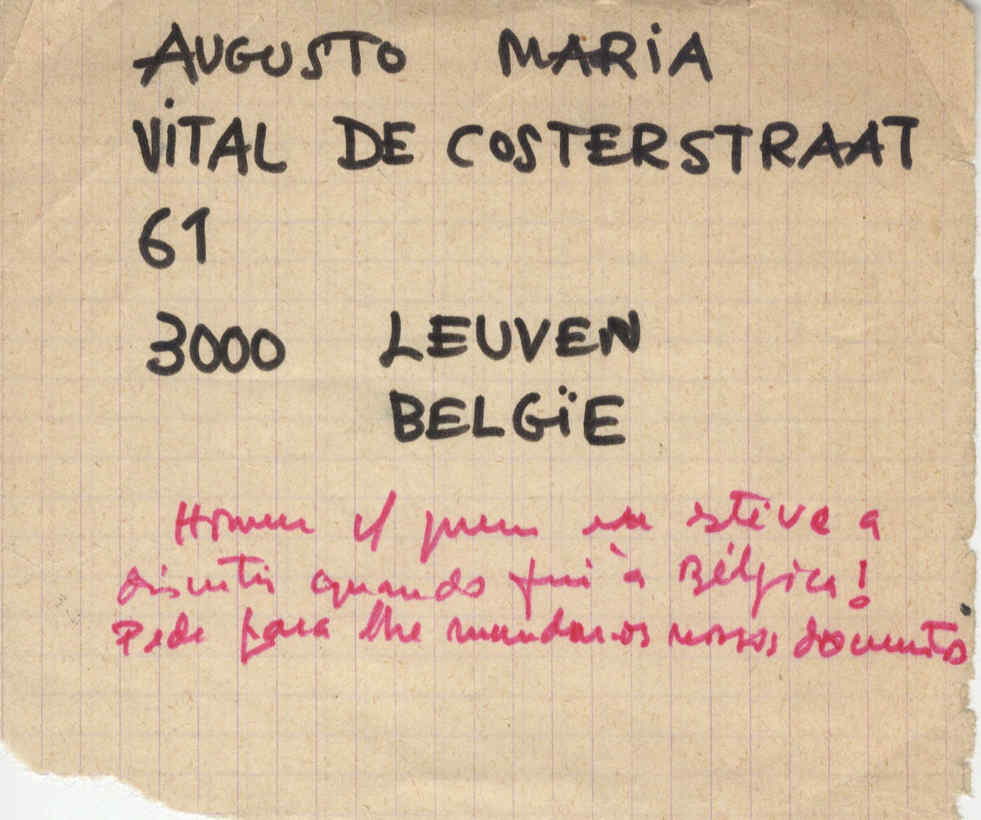 AUGUSTO MARIA
ViTAL DE COSTERSTRAAT
61
3000 LEUVEN
BELGÏE
Homem c/ quem eu estive a
discutir quando fui à Bélgica!
Pede para lhe mandar os nossos documentos